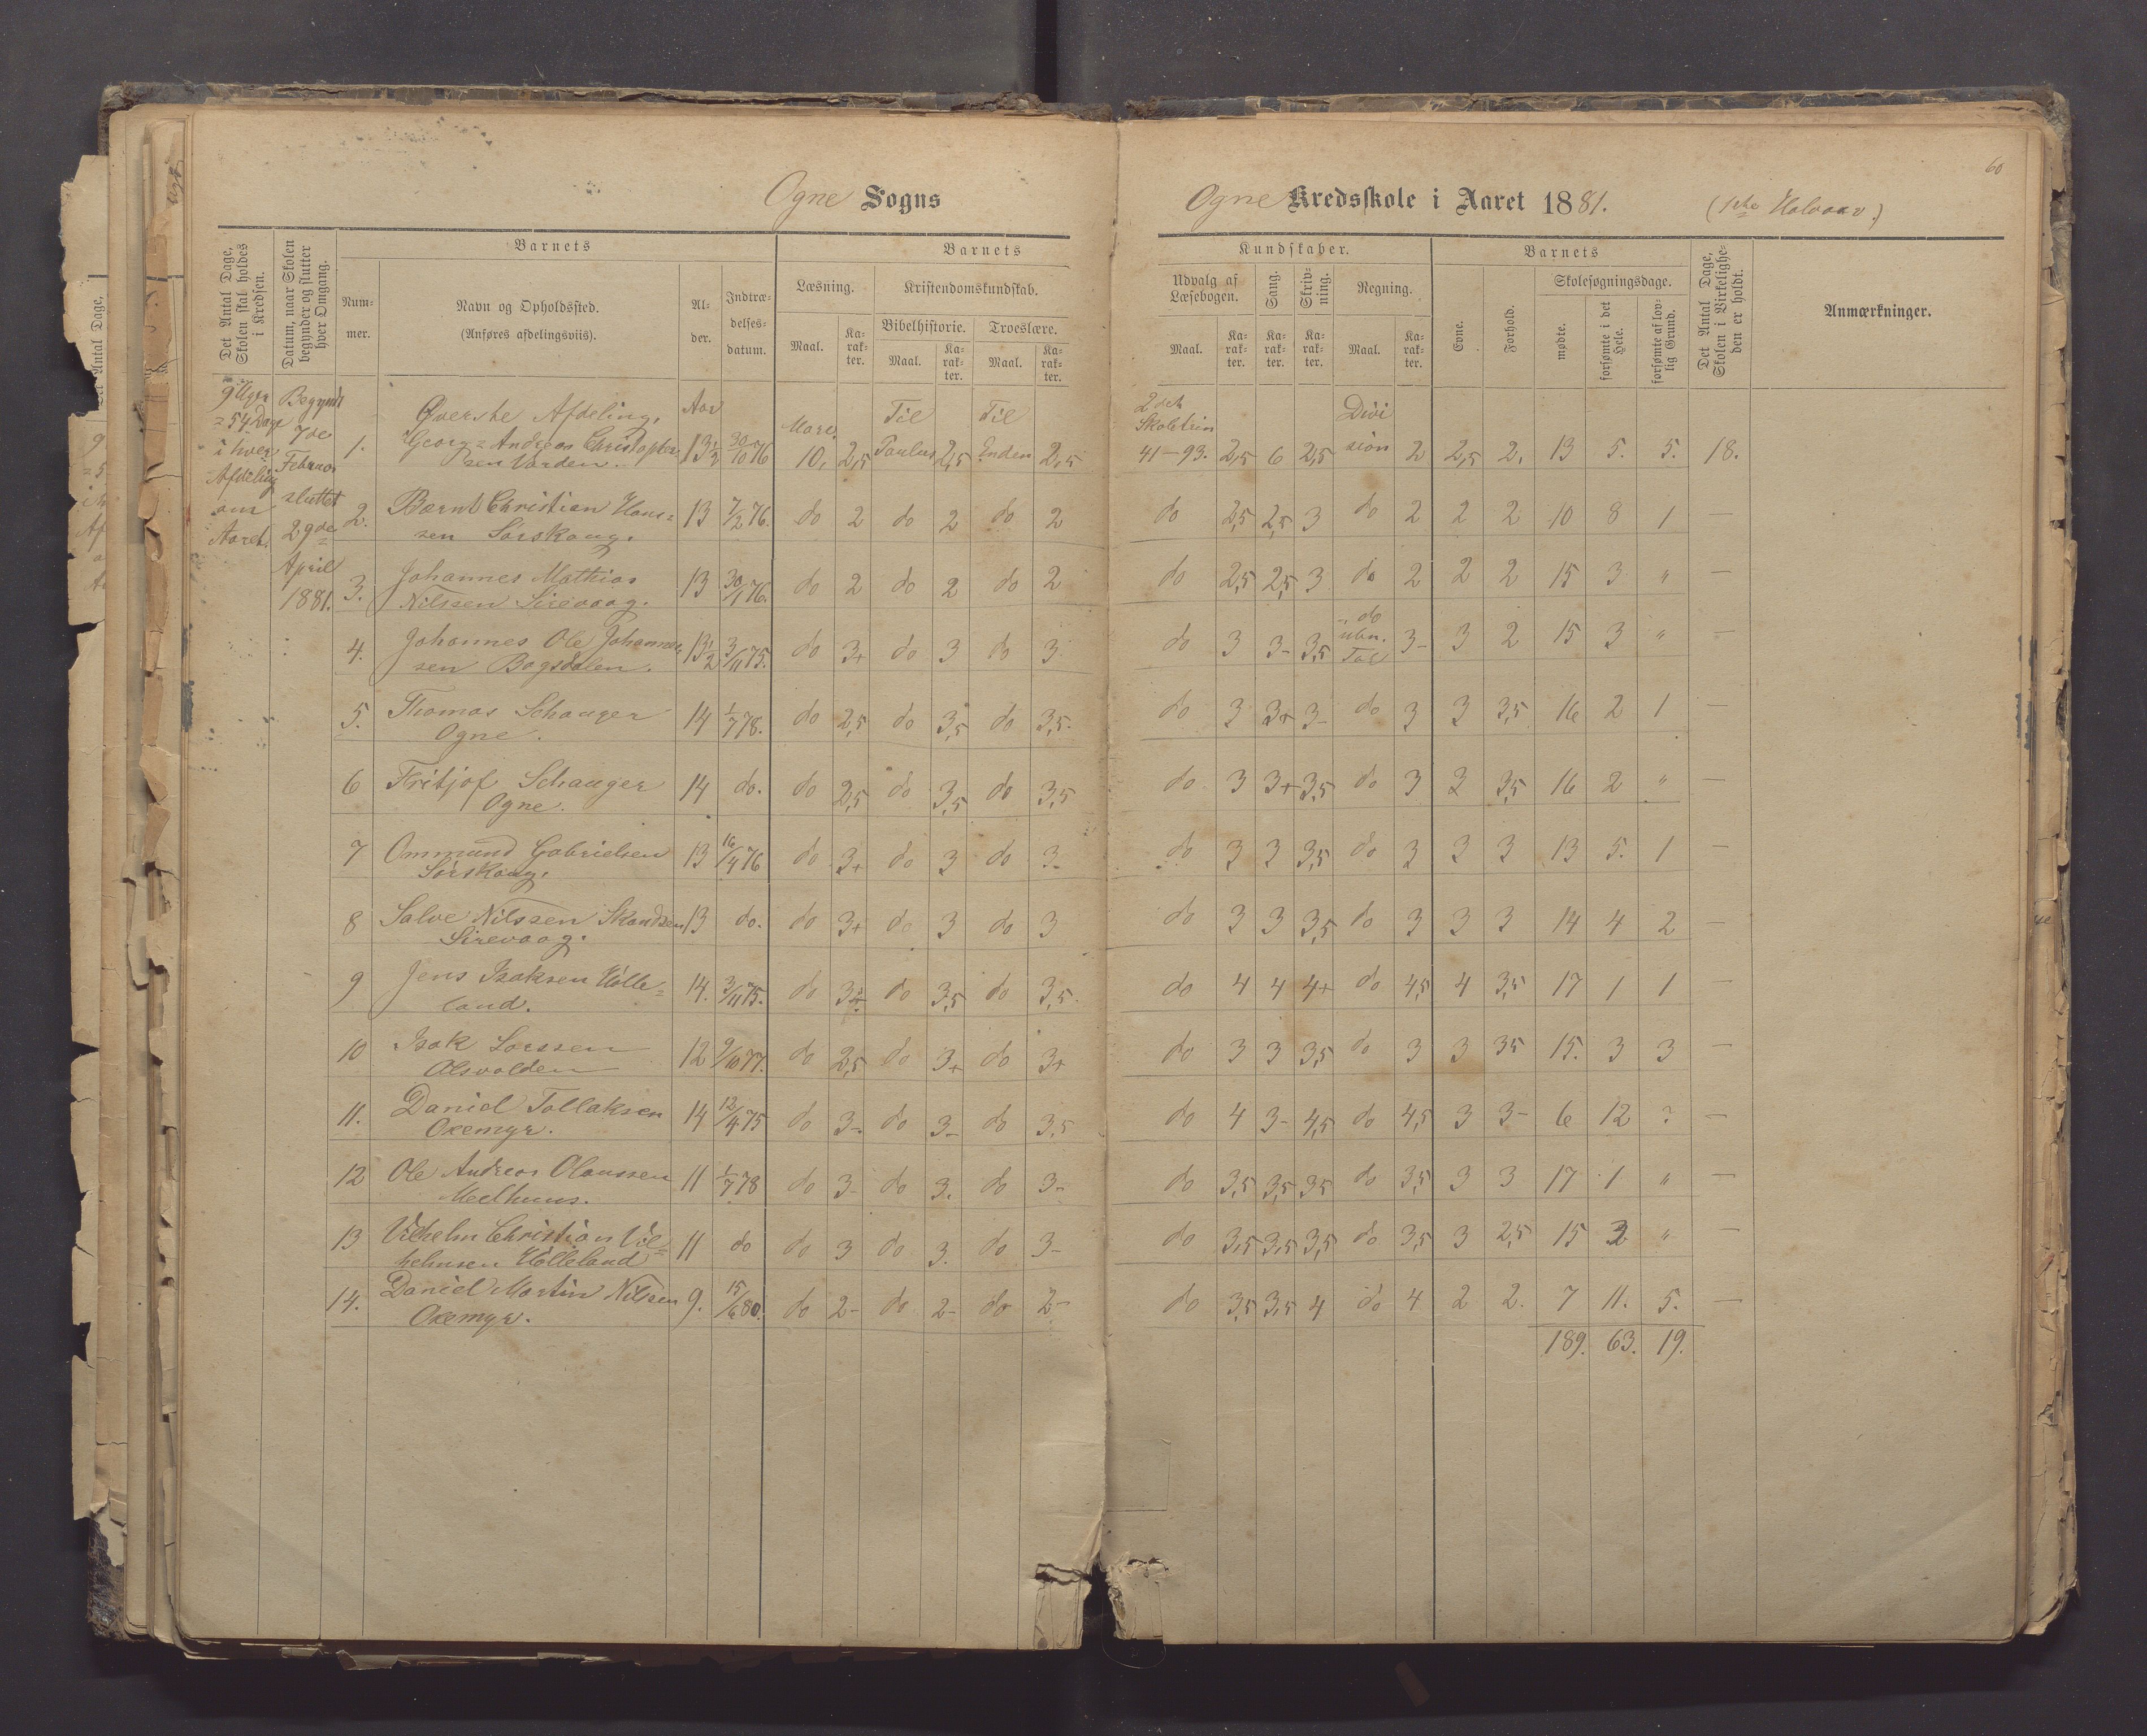 60
Ogne Sogns
Ogne Kredsskole i Aaret 1881. (1ste Halvaar.)
Det Antal Dage, Skolen skal holdes i Kredsen.
Datum, naar Skolen begynder og slutter hver Omgang.
Barnets
Num-mer.
Navn og Opholdssted.
(Anføres afdelingsviis).
Al-der.
Indtræ-delses-datum.
Barnets
Læsning.
Maal.
Ka-rak-ter.
Kristendomskundskab.
Bibelhistorie.
Maal.
Ka-rak-ter.
Troeslære.
Maal.
Ka-rak-ter.
Kundskaber.
Udvalg af Læsebogen.
Maal.
Ka-rak-ter.
Sang.
Ka-rak-ter.
Skriv-ning.
Ka-rak-ter.
Regning.
Maal.
Ka-rak-ter.
Barnets
Evne.
Forhold.
Skolesøgningsdage.
mødte.
forsømte i det Hele.
forsømte af lov-lig Grund.
Det Antal Dage, Skolen i Virkelighe-den er holdt.
Anmærkninger.
9 Uger
= 54 Dage
i hver
Afdeling
om
Aaret.
Begyndt
7de
Februar
sluttet
29de
April
1881.
Øverste Afdeling. Aar Til Til 2det Skoletrin Divi
1. Georg Andreas Christopher 13½ 30/10 76 Marc. 10, 2,5 Paulus 2,5 Enden 2,5 41-93. 2,5 6 2,5 sion 2 2,5 2. 13 5. 5. 18.
sen Varden.
2. Bærnt Christian Hans= 13 7/2 76. do 2 do 2 do 2 do 2,5 2,5 3 do 2 2 2 10 8 1 —
sen Sørskoug.
3. Johannes Mathias 13 30/1 76. do 2 do 2 do 2 do 2,5 2,5 3 do 2 2 2 15 3 " —
Nilssen Sirevaag.
4. Johannes Ole Johannes 13½ 3/11 75. do 3+ do 3 do 3 do 3 3- 3,5 do ubn. Tal 3- 3 2 15 3 " —
sen Bogsdalen.
5. Thomas Schanger 14 1/7 78. do 2,5 do 3,5 do 3,5. do 3 3+ 3- do 3 3 3,5 16 2 1 —
Ogne.
6 Fritjof Schanger 14 do. do 2,5 do 3,5 do 3,5 do 3 3+ 3,5 do 3 3 3,5 16 2 " —
Ogne.
7 Ommund Gabrielsen 13 16/4 76 do 3+ do 3 do 3- do 3 3 3,5 do 3 3 3 13 5. 1 —
Sørskoug.
8 Salve Nilssen Skandsen 13 do. do 3+ do 3 do 3 do 3 3 3,5 do 3 3 3 14 4 2 —
Sirevaag.
9 Jens Isaksen Hølle= 14. 3/11 75. do do 3,5 do 3,5. do 4 4 4+ do 4,5 4 3,5 17 1 1 —
land.
10 Isak Larssen 12 9/10 77. do 2,5 do 3+ do 3+ do 3 3 3,5 do 3 3 3,5 15. 3 3 —
Alsvolden
11. Daniel Tollaksen 14 12/4 75 do 3-. do 3- do 3,5 do 4 3- 4,5 do 4,5 3 3- 6 12 ? —
Oremyr.
12 Ole Andreas Olaussen 11 1/7 78 do 3- do 3. do 3- do 3,5 3,5 3,5 do 3,5 3 3 17 1 " —
Meelhuus.
13 Vilhelm Christian Vil= 11 do do 3 do 3. do 3- do 3,5 3,5 3,5 do 3,5 3 2,5 15 " —
helmsen Hølleland
14. Daniel Martin Nilssen 9. 15/6 80. do 2- do 2- do 2- do 3,5 3,5 4 do 4 2 2. 7 11. 5. —
Oremyr.
189. 63. 19.